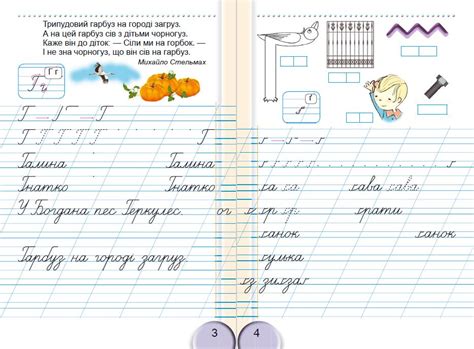 Трипудовий гарбуз на городі загруз.
А на цей гарбуз сів з дітьми чорногуз.
Каже він до діток: — Сіли ми на горбок. —
І не зна чорногуз, що він сів на гарбуз.
Михайло Стельмах
Г г
Г г
Г Г Г
Г Г Г Г Г Г
Галина Галина
Гнатко Гнатко
У Богдана пес Геркулес. ог
Гарбуз на городі загруз.
3
ґ
ґа ґа ґава ґава
ґр ґр ґрати
ґанок ґанок
ґулька
зиґзаґ
4